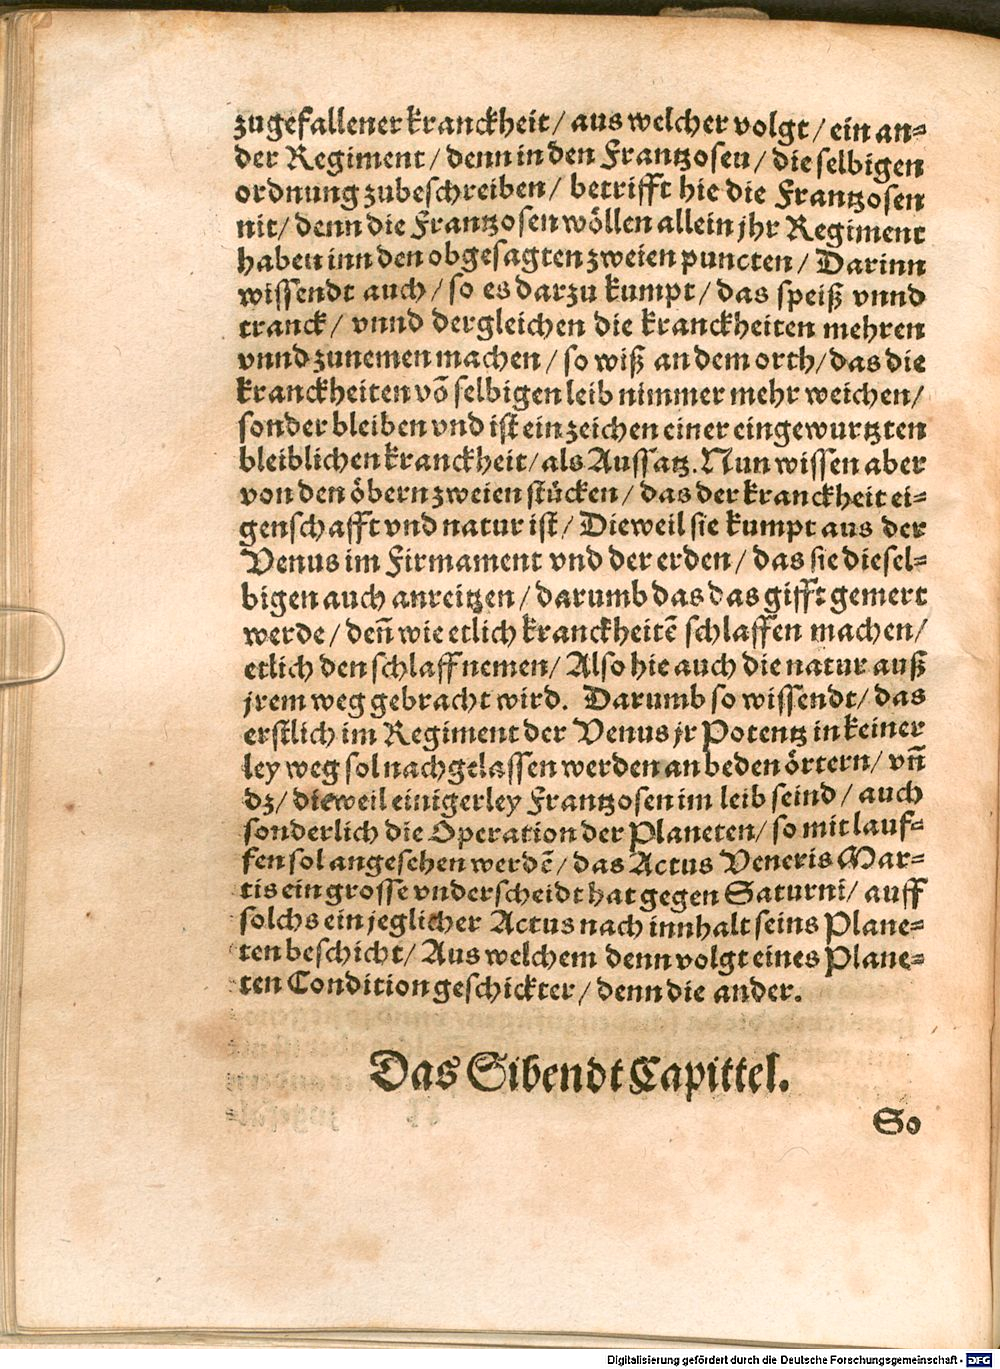 zugefallener kranckheit / aus welcher volgt / ein an-
der Regiment / denn in den Frantzosen / die selbigen
ordnung zubeschreiben / betrifft hie die Frantzosen
nit / denn die Frantzosen wöllen allein jhr Regiment
haben inn den obgesagten zweien puncten / Darinn
wissendt auch / so es darzu kumpt / das speiß vnnd
tranck / vnnd dergleichen die kranckheiten mehren
vnnd zunemen machen / so wiß an dem orth / das die
kranckheiten võ selbigen leib nimmer mehr weichen /
sonder bleiben vnd ist ein zeichen einer eingewurtzten
bleiblichen kranckheit / als Aussatz. Nun wissen aber
von den öbern zweien stücken / das der kranckheit ei-
genschafft vnd natur ist / Dieweil sie kumpt aus der
Venus im Firmament vnd der erden / das sie diesel-
bigen auch anreitzen / darumb das das gifft gemert
werde / deñ wie etlich kranckheitẽ schlaffen machen /
etlich den schlaff nemen / Also hie auch die natur auß
jrem weg gebracht wird. Darumb so wissendt / das
erstlich im Regiment der Venus jr Potentz in keiner
ley weg sol nachgelassen werden an beden örtern / vñ
dz / dieweil einigerley Frantzosen im leib seind / auch
sonderlich die Operation der Planeten / so mit lauf-
fen sol angesehen werdẽ / das Actus Veneris Mar-
tis ein grosse vnderscheidt hat gegen Saturni / auff
solchs ein jeglicher Actus nach innhalt seins Plane-
ten beschicht / Aus welchem denn volgt eines Plane-
ten Condition geschickter / denn die ander.
Das Sibendt Capittel.
So
Digitalisierung gefördert durch die Deutsche Forschungsgemeinschaft - DFG